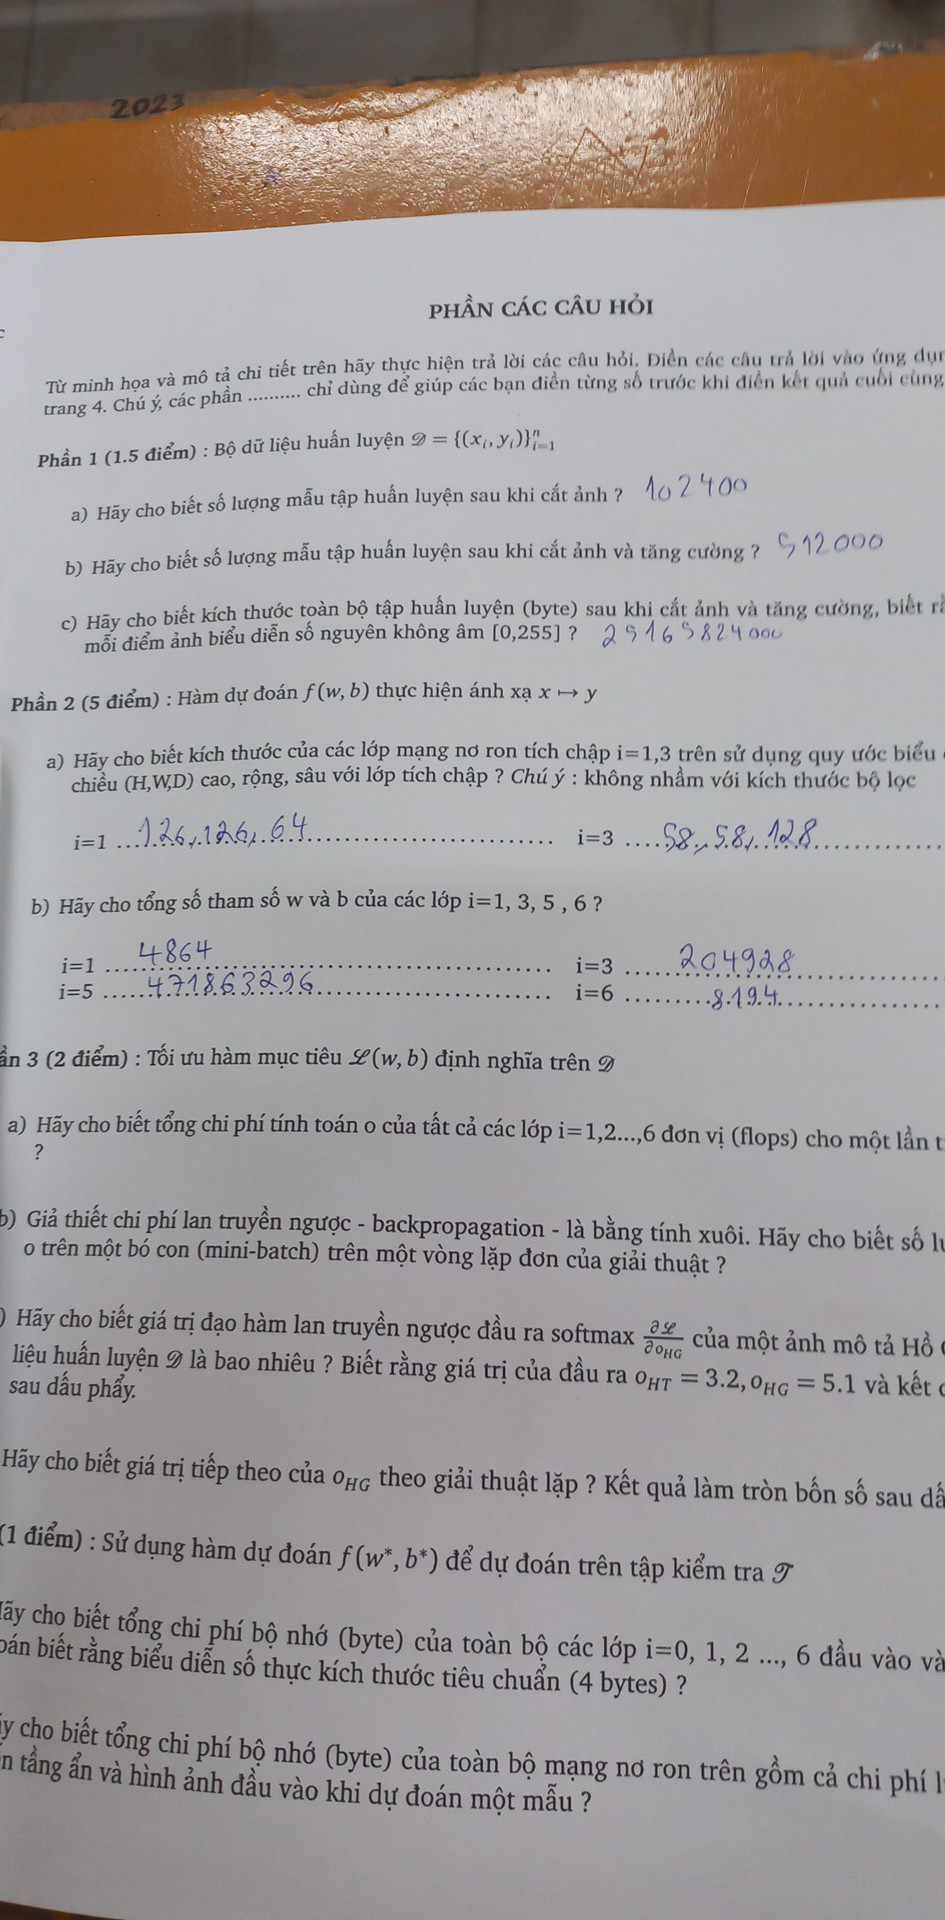 2023
PHẦN CÁC CÂU HỎI
Từ minh họa và mô tả chi tiết trên hãy thực hiện trả lời các câu hỏi. Điền các câu trả lời vào ứng
trang 4. Chú ý, các phần .......... chỉ dùng để giúp các bạn điền từng số trước khi điền kết quả cuối cùng
Phần 1 (1.5 điểm) : Bộ dữ liệu huấn luyện 𝒟 = {(xᵢ, yᵢ)}ⁿᵢ₌₁
a) Hãy cho biết số lượng mẫu tập huấn luyện sau khi cắt ảnh ? 102400
b) Hãy cho biết số lượng mẫu tập huấn luyện sau khi cắt ảnh và tăng cường ? 512000
c) Hãy cho biết kích thước toàn bộ tập huấn luyện (byte) sau khi cắt ảnh và tăng cường, biết
mỗi điểm ảnh biểu diễn số nguyên không âm [0,255] ? 25165824000
Phần 2 (5 điểm) : Hàm dự đoán f(w, b) thực hiện ánh xạ x ↦ y
a) Hãy cho biết kích thước của các lớp mạng nơ ron tích chập i=1,3 trên sử dụng quy ước biểu
chiều (H,W,D) cao, rộng, sâu với lớp tích chập ? Chú ý : không nhầm với kích thước bộ lọc
i=1 ...126, 126, 64............ i=3 ....58, 58, 128............
b) Hãy cho tổng số tham số w và b của các lớp i=1, 3, 5 , 6 ?
i=1 ...4864............ i=3 ....204928............
i=5 ......471863296............ i=6 .........8194............
3 (2 điểm) : Tối ưu hàm mục tiêu ℒ(w, b) định nghĩa trên 𝒟
a) Hãy cho biết tổng chi phí tính toán o của tất cả các lớp i=1,2...,6 đơn vị (flops) cho một lần
?
b) Giả thiết chi phí lan truyền ngược - backpropagation - là bằng tính xuôi. Hãy cho biết số
o trên một bó con (mini-batch) trên một vòng lặp đơn của giải thuật ?
) Hãy cho biết giá trị đạo hàm lan truyền ngược đầu ra softmax ∂ℒ/∂o_HG của một ảnh mô tả Hồ
liệu huấn luyện 𝒟 là bao nhiêu ? Biết rằng giá trị của đầu ra o_HT = 3.2, o_HG = 5.1 và kết
sau dấu phẩy.
Hãy cho biết giá trị tiếp theo của o_HG theo giải thuật lặp ? Kết quả làm tròn bốn số sau
(1 điểm) : Sử dụng hàm dự đoán f(w*, b*) để dự đoán trên tập kiểm tra 𝒯
cho biết tổng chi phí bộ nhớ (byte) của toàn bộ các lớp i=0, 1, 2 ..., 6 đầu vào
biết rằng biểu diễn số thực kích thước tiêu chuẩn (4 bytes) ?
cho biết tổng chi phí bộ nhớ (byte) của toàn bộ mạng nơ ron trên gồm cả chi phí
tầng ẩn và hình ảnh đầu vào khi dự đoán một mẫu ?